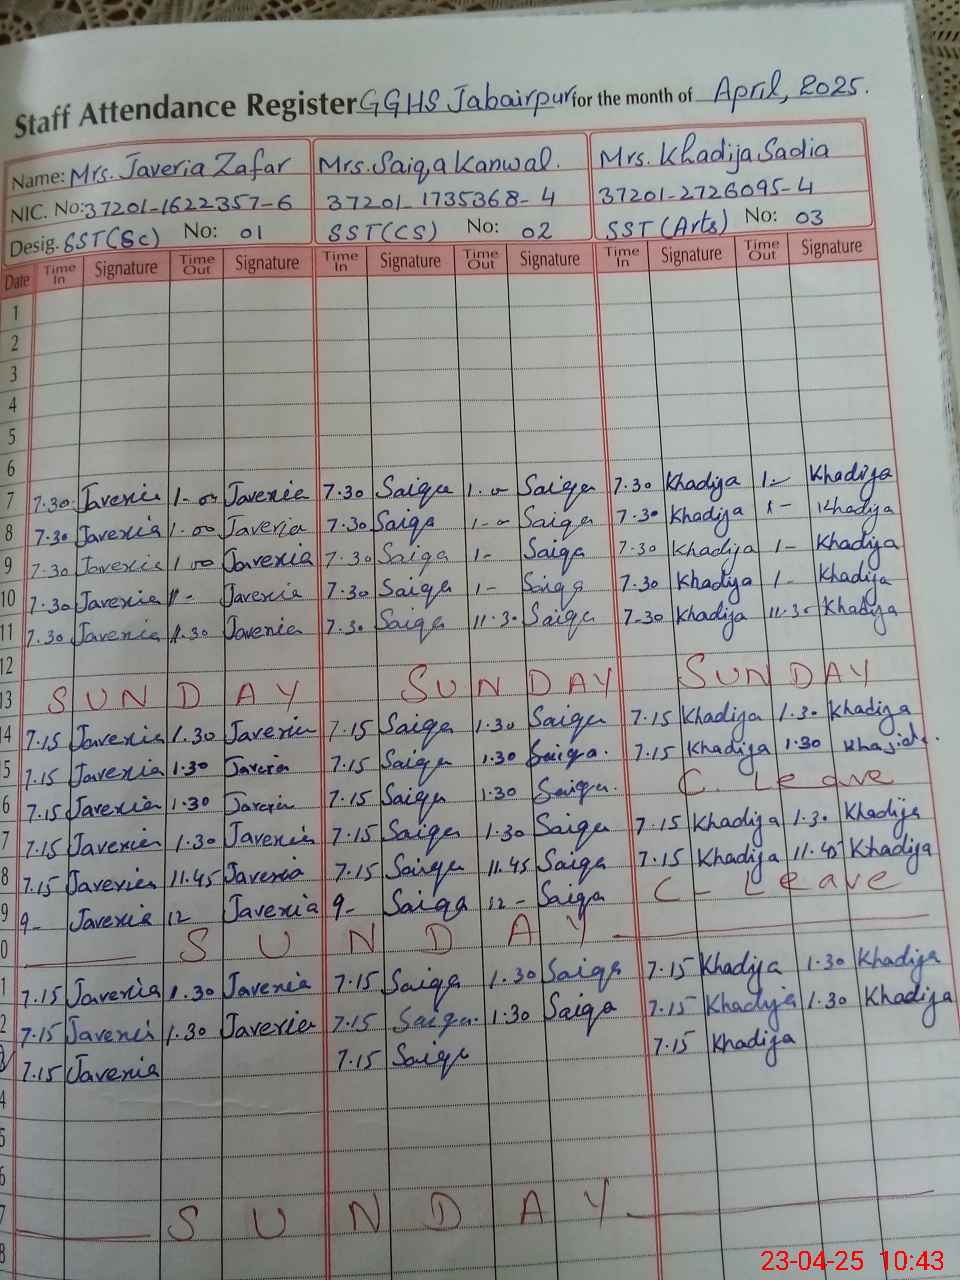 Staff Attendance Register GGHS Jabairpur for the month of April, 2025.
Name: Mrs. Javeria Zafar Mrs. Saiqa Kanwal. Mrs. Khadija Sadia
NIC. No: 37201-1622357-6 37201-1735368-4 37201-2726095-4
Desig. SST(Sc) No: 01 SST(CS) No: 02 SST(Arts) No: 03
Date Time In Signature Time Out Signature Time In Signature Time Out Signature Time In Signature Time Out Signature
1
2
3
4
5
6
7 7.30 Javeria 1-00 Javeria 7.30 Saiqa 1.0 Saiqa 7.30 Khadija 1- Khadija
8 7.30 Javeria 1.00 Javeria 7.30 Saiqa 1-0 Saiqa 7.30 Khadija 1- Khadija
9 7.30 Javeria 1 00 Javeria 7.30 Saiqa 1- Saiqa 7.30 Khadija 1- Khadija
10 7.30 Javeria 1- Javeria 7.30 Saiqa 1- Saiqa 7.30 Khadija 1- Khadija
11 7.30 Javeria 11.30 Javeria 7.30 Saiqa 11.30 Saiqa 7-30 Khadija 11.30 Khadija
12
13 SUNDAY SUNDAY SUNDAY
4 7.15 Javeria 1.30 Javeria 7.15 Saiqa 1.30 Saiqa 7.15 Khadija 1.30 Khadija
5 7.15 Javeria 1.30 Javeria 7.15 Saiqa 1.30 Saiqa. 7.15 Khadija 1.30 Khadija.
6 7.15 Javeria 1.30 Javeria 7.15 Saiqa 1.30 Saiqa. C. Leave
7 7.15 Javeria 1.30 Javeria 7.15 Saiqa 1.30 Saiqa 7.15 Khadija 1.30 Khadija
8 7.15 Javeria 11.45 Javeria 7.15 Saiqa 11.45 Saiqa 7.15 Khadija 11.45 Khadija
9 9- Javeria 12 Javeria 9- Saiqa 12- Saiqa C- Leave
0 SUNDAY
1 7.15 Javeria 1.30 Javeria 7.15 Saiqa 1.30 Saiqa 7.15 Khadija 1.30 Khadija
2 7.15 Javeria 1.30 Javeria 7.15 Saiqa. 1.30 Saiqa 7.15 Khadija 1.30 Khadija
7.15 Javeria 7.15 Saiqa 7.15 Khadija
4
5
6
7 SUNDAY
8
23-04-25 10:43